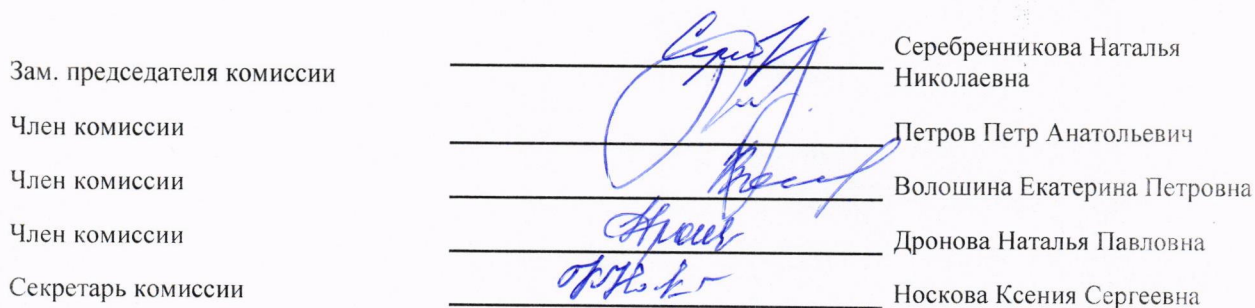 Зам. председателя комиссии Серебренникова Наталья
Николаевна
Член комиссии Петров Петр Анатольевич
Член комиссии Волошина Екатерина Петровна
Член комиссии Дронова Наталья Павловна
Секретарь комиссии Носкова Ксения Сергеевна